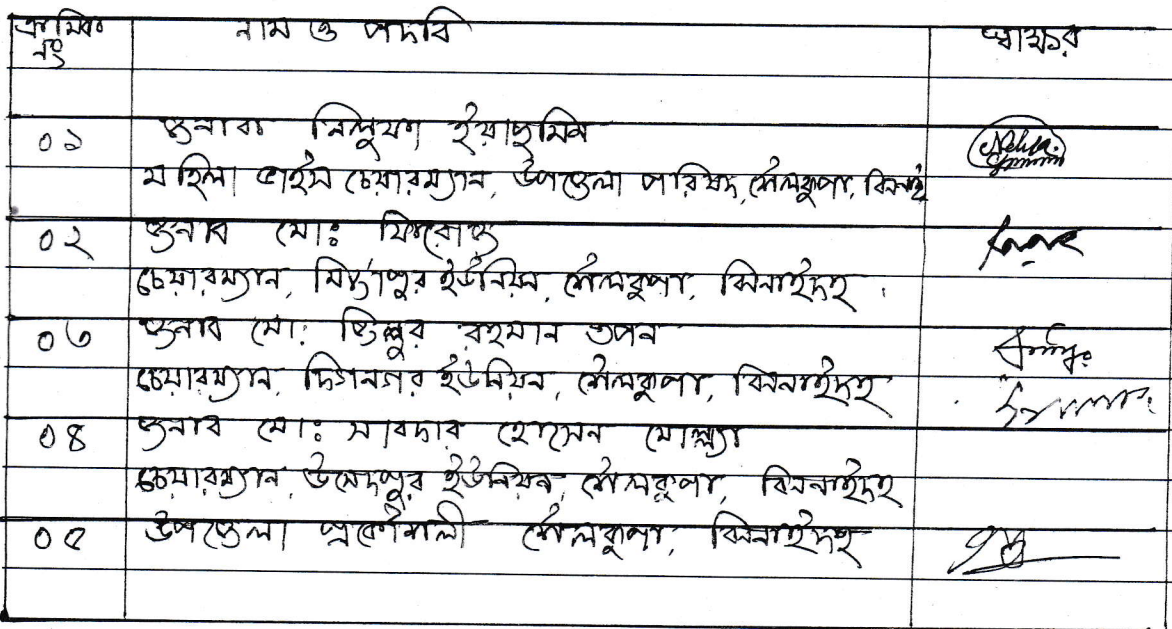 ক্রমিক নং নাম ও পদবি স্বাক্ষর
০১ জনাব ইয়াছমিন
মহিলা ভাইস চেয়ারম্যান, উপজেলা পরিষদ, শৈলকুপা, ঝিনাই
০২ জনাব মোঃ ফিরোজ
চেয়ারম্যান, মির্জাপুর ইউনিয়ন, শৈলকুপা, ঝিনাইদহ
০৩ জনাব মো: জিল্লুর রহমান তপন
চেয়ারম্যান, দিগনগর ইউনিয়ন, শৈলকুপা, ঝিনাইদহ
০৪ জনাব মোঃ সাবদার হোসেন মোল্ল্যা
চেয়ারম্যান, উমেদপুর ইউনিয়ন, শৈলকুপা, ঝিনাইদহ
০৫ উপজেলা প্রকৌশলী শৈলকুপা, ঝিনাইদহ